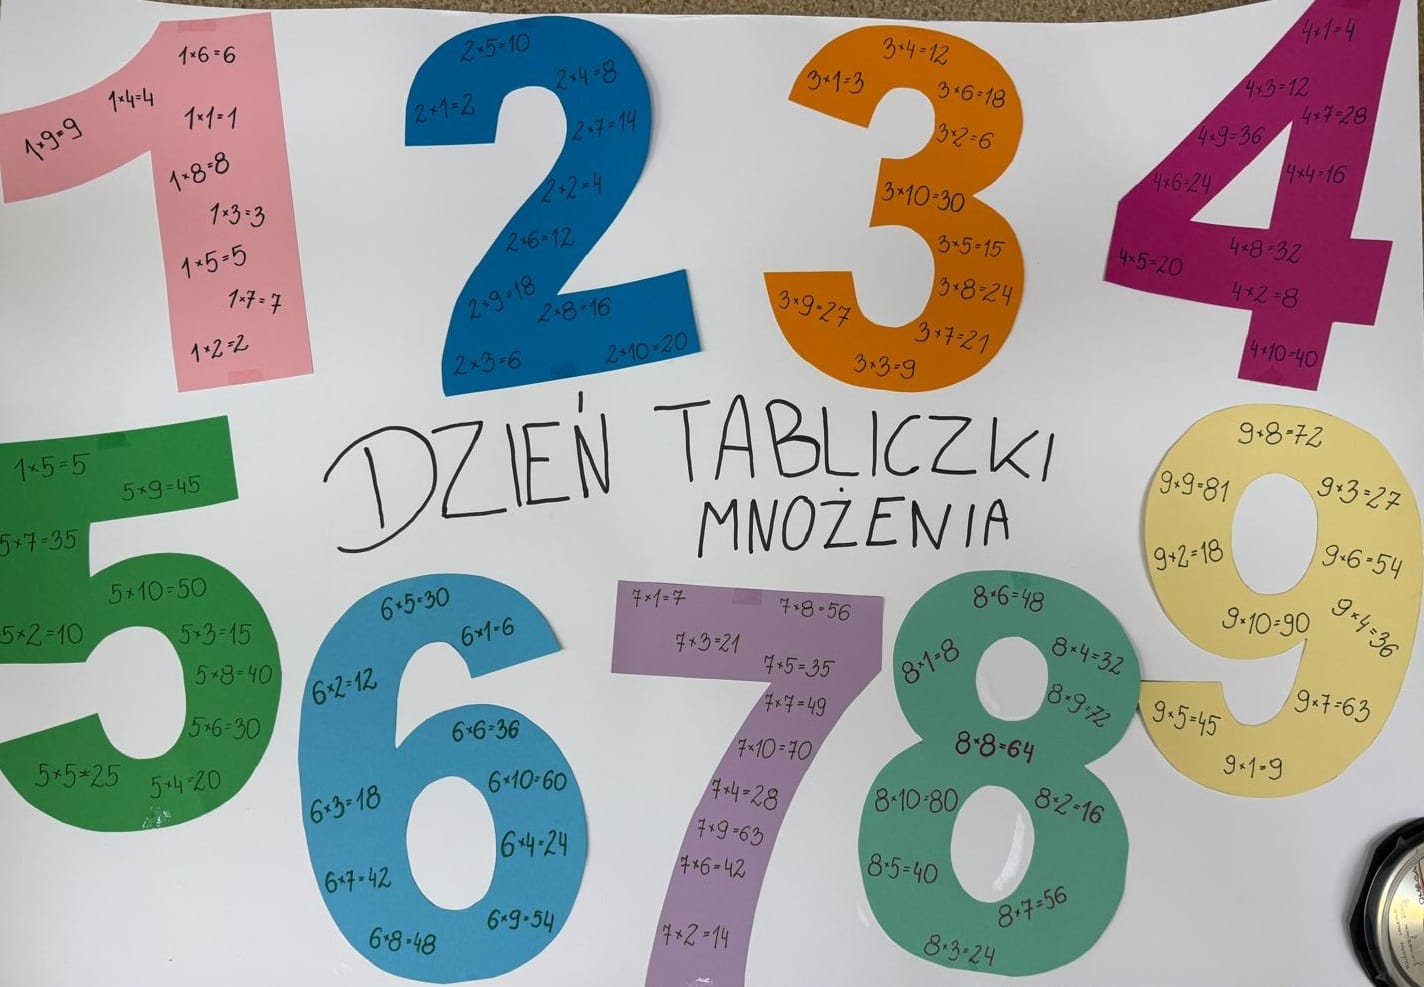 1×6=6
1×4=4
1×9=9
1×1=1
1×8=8
1×3=3
1×5=5
1×7=7
1×2=2
2×5=10
2×4=8
2×1=2
2×7=14
2×2=4
2×6=12
2×9=18
2×8=16
2×3=6
2×10=20
3×4=12
3×1=3
3×6=18
3×2=6
3×10=30
3×5=15
3×8=24
3×9=27
3×7=21
3×3=9
4×1=4
4×3=12
4×7=28
4×9=36
4×6=24
4×4=16
4×8=32
4×5=20
4×2=8
4×10=40
DZIEŃ TABLICZKI
MNOŻENIA
1×5=5
5×9=45
5×7=35
5×10=50
5×2=10
5×3=15
5×8=40
5×6=30
5×5=25
5×4=20
6×5=30
6×1=6
6×2=12
6×6=36
6×10=60
6×3=18
6×4=24
6×7=42
6×9=54
6×8=48
7×1=7
7×8=56
7×3=21
7×5=35
7×7=49
7×10=70
7×4=28
7×9=63
7×6=42
7×2=14
8×6=48
8×1=8
8×4=32
8×9=72
8×8=64
8×10=80
8×2=16
8×5=40
8×7=56
8×3=24
9×8=72
9×9=81
9×3=27
9×2=18
9×6=54
9×10=90
9×4=36
9×5=45
9×7=63
9×1=9